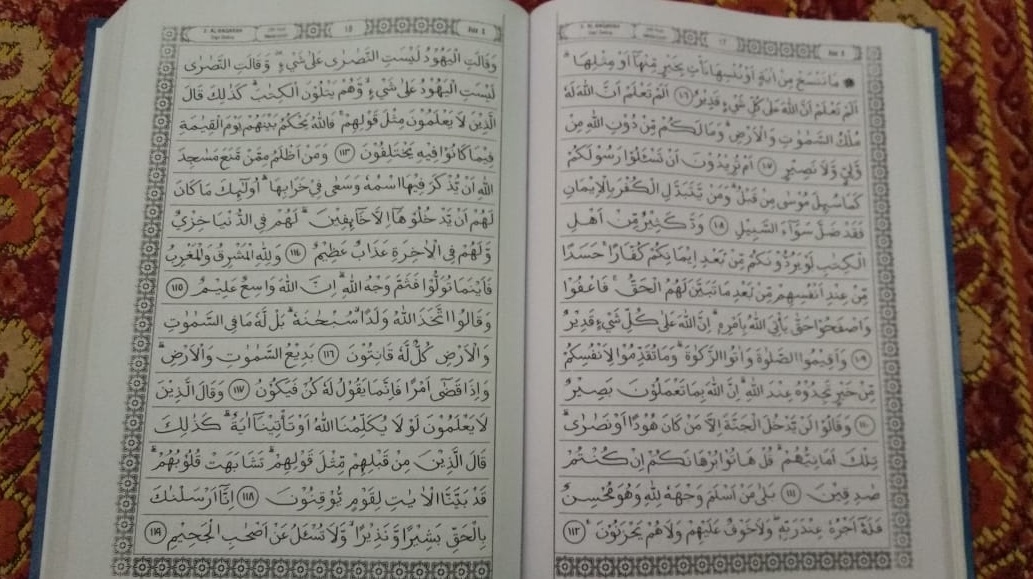 Juz 1
١٧
2. AL BAQARAH
مَا نَنْسَخْ مِنْ اٰيَةٍ اَوْ نُنْسِهَا نَأْتِ بِخَيْرٍ مِّنْهَآ اَوْ مِثْلِهَاۗ
اَلَمْ تَعْلَمْ اَنَّ اللّٰهَ عَلٰى كُلِّ شَيْءٍ قَدِيْرٌ ١٠٦ اَلَمْ تَعْلَمْ اَنَّ اللّٰهَ لَهٗ
مُلْكُ السَّمٰوٰتِ وَالْاَرْضِۗ وَمَا لَكُمْ مِّنْ دُوْنِ اللّٰهِ مِنْ
وَّلِيٍّ وَّلَا نَصِيْرٍ ١٠٧ اَمْ تُرِيْدُوْنَ اَنْ تَسْـَٔلُوْا رَسُوْلَكُمْ
كَمَا سُىِٕلَ مُوْسٰى مِنْ قَبْلُۗ وَمَنْ يَّتَبَدَّلِ الْكُفْرَ بِالْاِيْمَانِ
فَقَدْ ضَلَّ سَوَاۤءَ السَّبِيْلِ ١٠٨ وَدَّ كَثِيْرٌ مِّنْ اَهْلِ
الْكِتٰبِ لَوْ يَرُدُّوْنَكُمْ مِّنْ بَعْدِ اِيْمَانِكُمْ كُفَّارًاۚ حَسَدًا
مِّنْ عِنْدِ اَنْفُسِهِمْ مِّنْ بَعْدِ مَا تَبَيَّنَ لَهُمُ الْحَقُّۚ فَاعْفُوْا
وَاصْفَحُوْا حَتّٰى يَأْتِيَ اللّٰهُ بِاَمْرِهٖۗ اِنَّ اللّٰهَ عَلٰى كُلِّ شَيْءٍ قَدِيْرٌ
١٠٩ وَاَقِيْمُوا الصَّلٰوةَ وَاٰتُوا الزَّكٰوةَۗ وَمَا تُقَدِّمُوْا لِاَنْفُسِكُمْ
مِّنْ خَيْرٍ تَجِدُوْهُ عِنْدَ اللّٰهِۗ اِنَّ اللّٰهَ بِمَا تَعْمَلُوْنَ بَصِيْرٌ
١١٠ وَقَالُوْا لَنْ يَّدْخُلَ الْجَنَّةَ اِلَّا مَنْ كَانَ هُوْدًا اَوْ نَصٰرٰىۗ
تِلْكَ اَمَانِيُّهُمْۗ قُلْ هَاتُوْا بُرْهَانَكُمْ اِنْ كُنْتُمْ
صٰدِقِيْنَ ١١١ بَلٰى مَنْ اَسْلَمَ وَجْهَهٗ لِلّٰهِ وَهُوَ مُحْسِنٌ
فَلَهٗٓ اَجْرُهٗ عِنْدَ رَبِّهٖۖ وَلَا خَوْفٌ عَلَيْهِمْ وَلَا هُمْ يَحْزَنُوْنَ ١١٢
Juz 1
١٨
2. AL BAQARAH
وَقَالَتِ الْيَهُوْدُ لَيْسَتِ النَّصٰرٰى عَلٰى شَيْءٍۖ وَّقَالَتِ النَّصٰرٰى
لَيْسَتِ الْيَهُوْدُ عَلٰى شَيْءٍۙ وَّهُمْ يَتْلُوْنَ الْكِتٰبَۗ كَذٰلِكَ قَالَ
الَّذِيْنَ لَا يَعْلَمُوْنَ مِثْلَ قَوْلِهِمْۚ فَاللّٰهُ يَحْكُمُ بَيْنَهُمْ يَوْمَ الْقِيٰمَةِ
فِيْمَا كَانُوْا فِيْهِ يَخْتَلِفُوْنَ ١١٣ وَمَنْ اَظْلَمُ مِمَّنْ مَّنَعَ مَسٰجِدَ
اللّٰهِ اَنْ يُّذْكَرَ فِيْهَا اسْمُهٗ وَسَعٰى فِيْ خَرَابِهَاۗ اُولٰۤىِٕكَ مَا كَانَ
لَهُمْ اَنْ يَّدْخُلُوْهَآ اِلَّا خَاۤىِٕفِيْنَۗ لَهُمْ فِى الدُّنْيَا خِزْيٌ
وَّلَهُمْ فِى الْاٰخِرَةِ عَذَابٌ عَظِيْمٌ ١١٤ وَلِلّٰهِ الْمَشْرِقُ وَالْمَغْرِبُ
فَاَيْنَمَا تُوَلُّوْا فَثَمَّ وَجْهُ اللّٰهِۗ اِنَّ اللّٰهَ وَاسِعٌ عَلِيْمٌ ١١٥
وَقَالُوا اتَّخَذَ اللّٰهُ وَلَدًاۙ سُبْحٰنَهٗۗ بَلْ لَّهٗ مَا فِى السَّمٰوٰتِ
وَالْاَرْضِۗ كُلٌّ لَّهٗ قَانِتُوْنَ ١١٦ بَدِيْعُ السَّمٰوٰتِ وَالْاَرْضِۗ
وَاِذَا قَضٰٓى اَمْرًا فَاِنَّمَا يَقُوْلُ لَهٗ كُنْ فَيَكُوْنُ ١١٧ وَقَالَ الَّذِيْنَ
لَا يَعْلَمُوْنَ لَوْلَا يُكَلِّمُنَا اللّٰهُ اَوْ تَأْتِيْنَآ اٰيَةٌۗ كَذٰلِكَ
قَالَ الَّذِيْنَ مِنْ قَبْلِهِمْ مِّثْلَ قَوْلِهِمْۘ تَشَابَهَتْ قُلُوْبُهُمْۗ
قَدْ بَيَّنَّا الْاٰيٰتِ لِقَوْمٍ يُّوْقِنُوْنَ ١١٨ اِنَّآ اَرْسَلْنٰكَ
بِالْحَقِّ بَشِيْرًا وَّنَذِيْرًاۙ وَّلَا تُسْـَٔلُ عَنْ اَصْحٰبِ الْجَحِيْمِ ١١٩